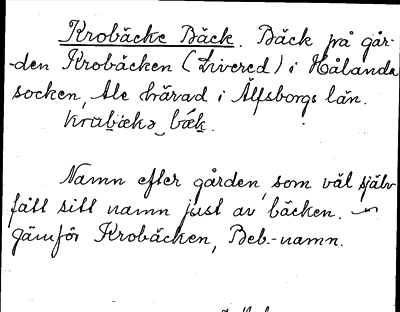 Krobäcke Bäck. Bäck på går-
den Krobäcken (Livered) i Hålanda
socken, Ale härad i Älfsborgs län.
Namn efter gården, som väl själv
fått sitt namn just av bäcken. —
Jämför Krobäcken, Beb.-namn.